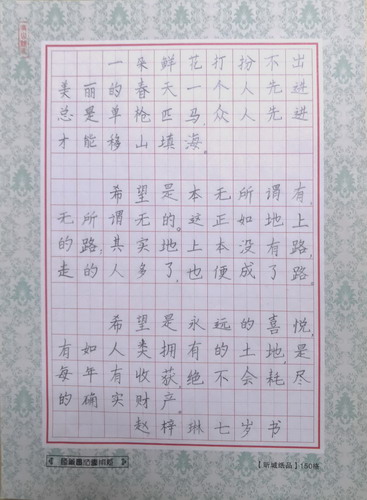 一朵鲜花打扮不出
美丽的春天一个人先进
总是单枪匹马,众人先进
才能移山填海。
希望是本无所谓有,
无所谓无的。这正如地上
的路,其实地上本没有路。
走的人多了,也便成了路。
希望是永远的喜悦,
有如人类拥有的土地,是
每年有收获,绝不会耗尽
的确实财产。
赵梓琳七岁书
【新城纸品】150格